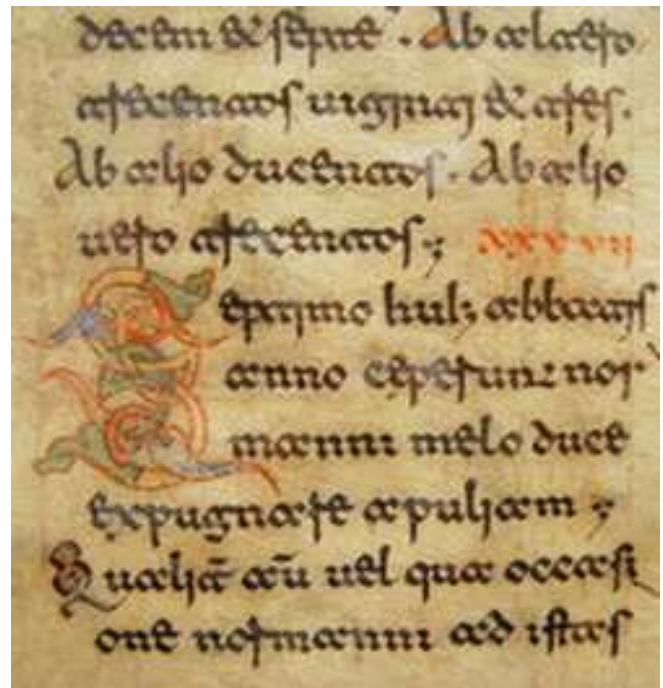 decem & septē . Ab altero
trecentos uiginti & tres.
Ab alio ducentos. Ab alio
uero trecentos; xxxvii
Septimo hui; abbatis
anno ceperunt nor
manni melo duce
expugnare apuliam;
Qualit̄ aū uel qua occasi
one normanni ad istas